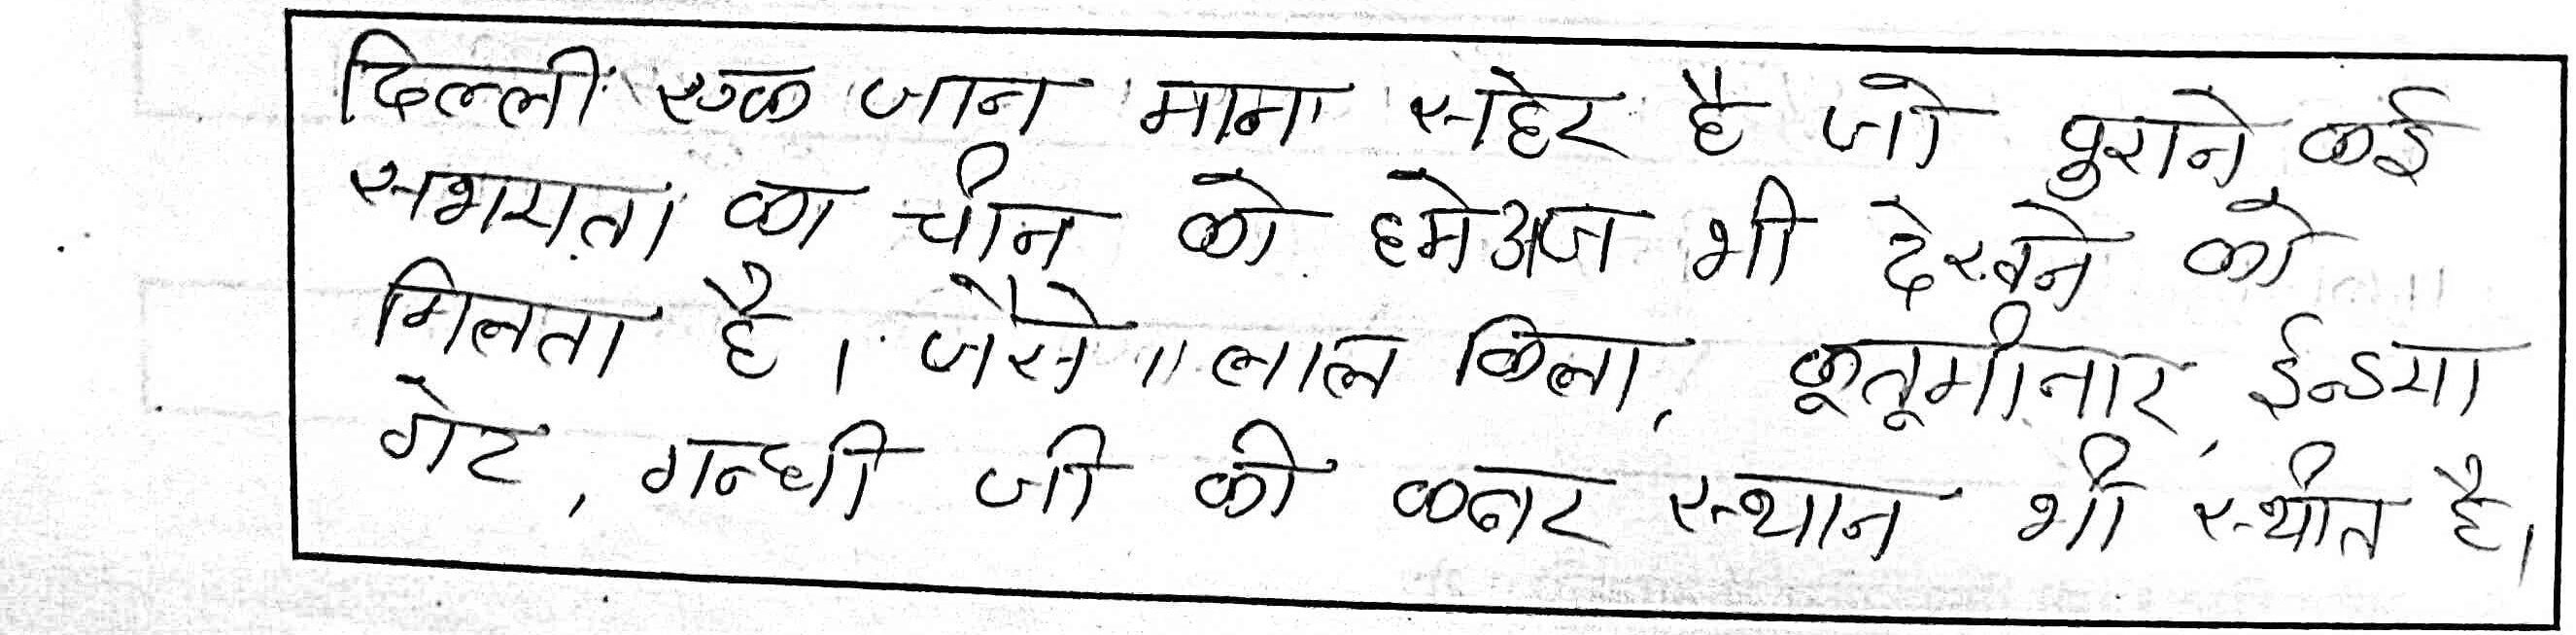 दिल्ली एक जान माना सहेर है जो पुराने कई
सभयता का चीन को हमे अज भी देखने को
मिलता है। जैसे "लाल किला, कूतूमीनार, ईन्डया
गेट, गन्धी जी की कबर स्थान भी स्थीत है।